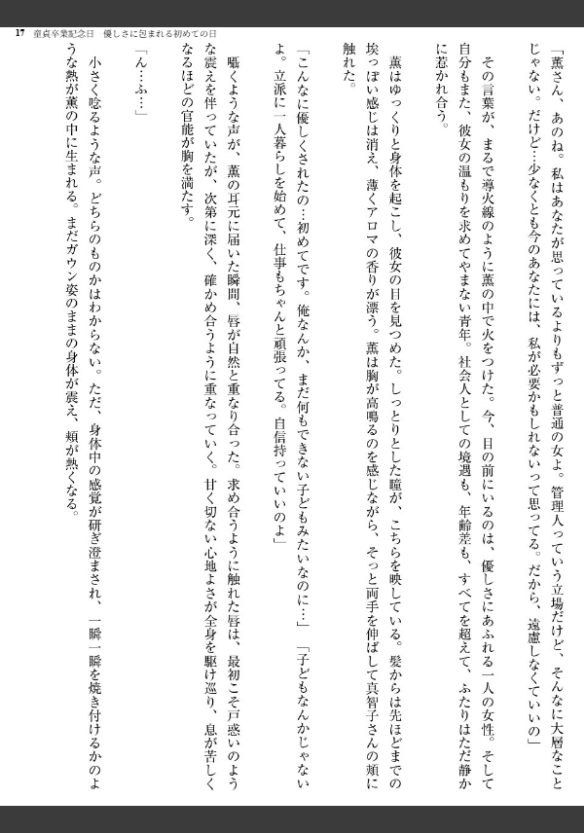 17 童貞卒業記念日　優しさに包まれる初めての日
「薫さん、あのね。私はあなたが思っているよりもずっと普通の女よ。管理人っていう立場だけど、そんなに大層なこと
じゃない。だけど…少なくとも今のあなたには、私が必要かもしれないって思ってる。だから、遠慮しなくていいの」
その言葉が、まるで導火線のように薫の中で火をつけた。今、目の前にいるのは、優しさにあふれる一人の女性。そして
自分もまた、彼女の温もりを求めてやまない青年。社会人としての境遇も、年齢差も、すべてを超えて、ふたりはただ静か
に惹かれ合う。
薫はゆっくりと身体を起こし、彼女の目を見つめた。しっとりとした瞳が、こちらを映している。髪からは先ほどまでの
埃っぽい感じは消え、薄くアロマの香りが漂う。薫は胸が高鳴るのを感じながら、そっと両手を伸ばして真智子さんの頬に
触れた。
「こんなに優しくされたの…初めてです。俺なんか、まだ何もできない子どもみたいなのに…」「子どもなんかじゃない
よ。立派に一人暮らしを始めて、仕事もちゃんと頑張ってる。自信持っていいのよ」
囁くような声が、薫の耳元に届いた瞬間、唇が自然と重なり合った。求め合うように触れた唇は、最初こそ戸惑いのよう
な震えを伴っていたが、次第に深く、確かめ合うように重なっていく。甘く切ない心地よさが全身を駆け巡り、息が苦しく
なるほどの官能が胸を満たす。
「ん…ふ…」
小さく唸るような声。どちらのものかはわからない。ただ、身体中の感覚が研ぎ澄まされ、一瞬一瞬を焼き付けるかのよ
うな熱が薫の中に生まれる。まだガウン姿のままの身体が震え、頬が熱くなる。